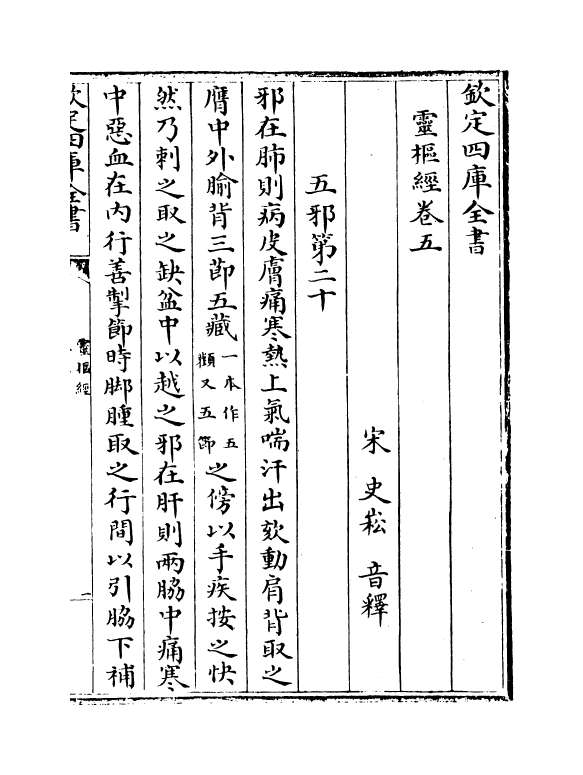 欽定四庫全書
靈樞經卷五
宋 史崧 音釋
五邪第二十
邪在肺則病皮膚痛寒熱上氣喘汗出欬動肩背取之
膺中外腧背三節五藏一本作五顀又五節之傍以手疾按之快
然乃刺之取之缺盆中以越之邪在肝則兩脇中痛寒
中惡血在内行善掣節時脚腫取之行間以引脇下補
欽定四庫全書
靈樞經
一